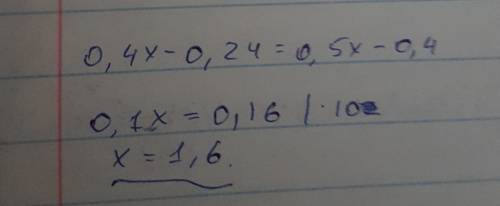 0,4x-0,24=0,5x-0,4
0,1x=0,16 |·10
x=1,6.